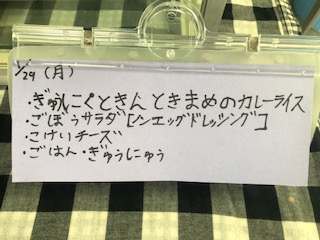 1/29 (月)
・ぎゅうにくときんときまめのカレーライス
・ごぼうサラダ[ノンエッグドレッシング]
・こけいチーズ
・ごはん・ぎゅうにゅう